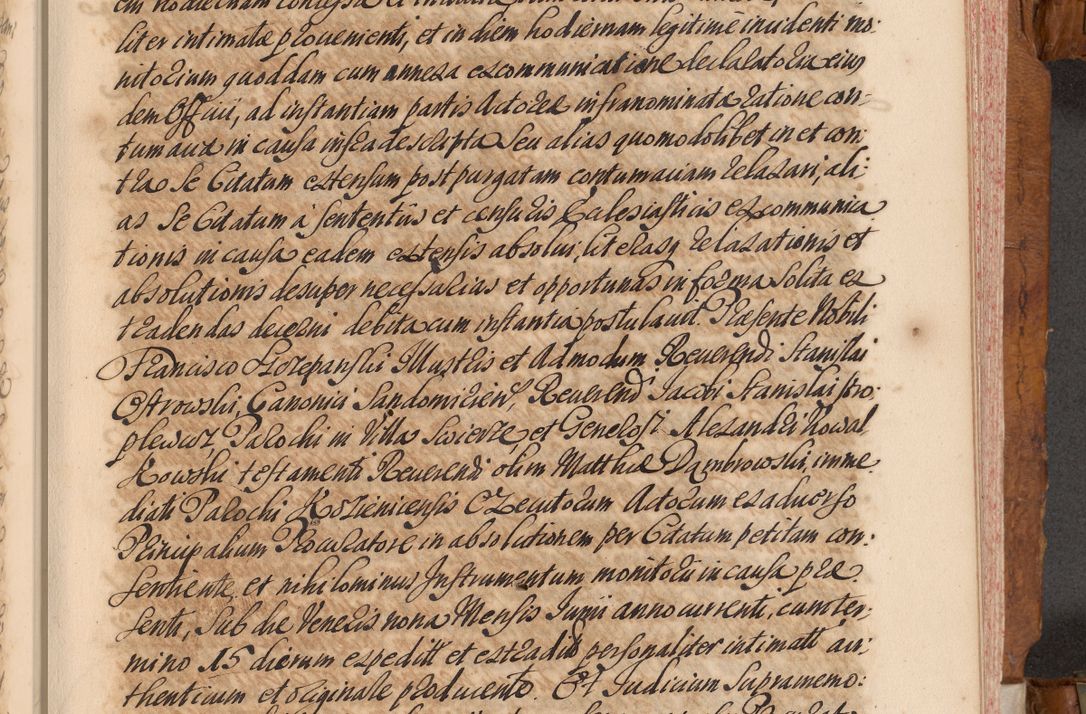 liter intimatæ provenienti, et in diem hodiernam legitime incidenti mo-
nitorium quoddam cum annexa excommunicatione declaratoria eius
dem Officii, ad instantiam partis Actoreæ infranominatæ ratione con-
tumaciæ in causa infradescripta seu alias quomodolibet in et con-
tra se Citatum extensum post purgatam contumaciam relaxari, ali-
as se Citatum à sententiis et censuris Ecclesiasticis excommunica
tionis in causa eadem extensis absolui, literasq relaxationis et
absolutionis desuper necessarias et opportunas in forma solita ex
tradendas decerni debita cum instantia postulauit. Præsente Nobili
Francisco Szczepanski Illustris et Admodum Reuerendi Stanislai
Ostrowski, Canonici Sandomirien, Reuerendi Jacobi Stanislai
Parochi in Villa Swierze, et Generosi Alexandri Kowal
kowski testamenti Reuerendi olim Matthiæ Dambrowski, imme
diati Parochi Kozienicensis Executorum Actorum ex aduerso
Principalium Procuratore in absolutionem per Citatum petitam con-
sentiente, et nihilominus Instrumentum monitorii in causa præ
senti, sub die Veneris nona Mensis Junii anno currenti, cum ter-
mino 15 dierum expediti et extraditi personaliter intimati au-
thenticum et originale producente. Et Judicium supramemo-